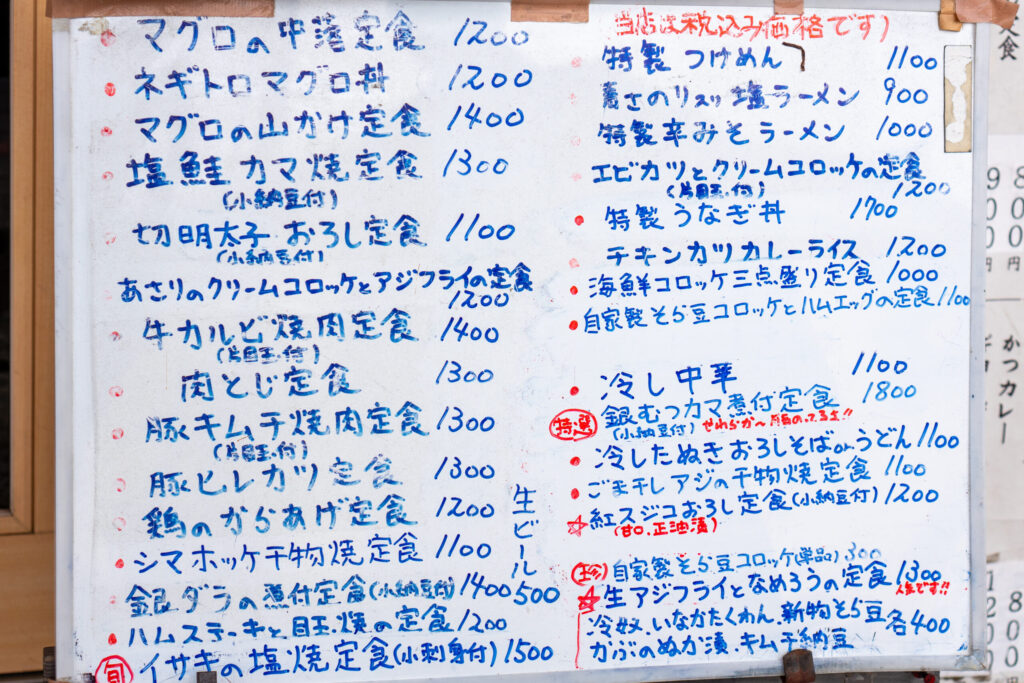 マグロの中落定食 1200
ネギトロマグロ丼 1200
マグロの山かけ定食 1400
塩鮭カマ焼定食 1300
(小納豆付)
切明太子おろし定食 1100
(小納豆付)
あさりのクリームコロッケとアジフライの定食
1200
牛カルビ焼肉定食 1400
(片目玉付)
肉とじ定食 1300
豚キムチ焼肉定食 1300
(片目玉付)
豚ヒレカツ定食 1300
鶏のからあげ定食 1200
シマホッケ干物焼定食 1100
銀ダラの煮付定食(小納豆付) 1400
ハムステーキと目玉焼の定食 1200
旬 イサキの塩焼定食(小刺身付) 1500
生ビール 500
当店は税込み価格です)
特製つけめん 1100
塩ラーメン 900
特製辛みそラーメン 1000
エビカツとクリームコロッケの定食
(片目玉付) 1200
特製うなぎ丼 1700
チキンカツカレーライス 1200
海鮮コロッケ三点盛り定食 1000
自家製そら豆コロッケとハムエッグの定食 1100
冷し中華 1100
特選 銀むつカマ煮付定食 1800
(小納豆付)
冷したぬきおろしそばorうどん 1100
ごま干しアジの干物焼定食 1100
☆紅スジコおろし定食(小納豆付) 1200
(甘口.正油漬)
自家製そら豆コロッケ(単品) 300
☆生アジフライとなめろうの定食 1300
人気です!!
冷奴.いなかたくわん.新物そら豆 各400
かぶのぬか漬.キムチ納豆
かつカレー